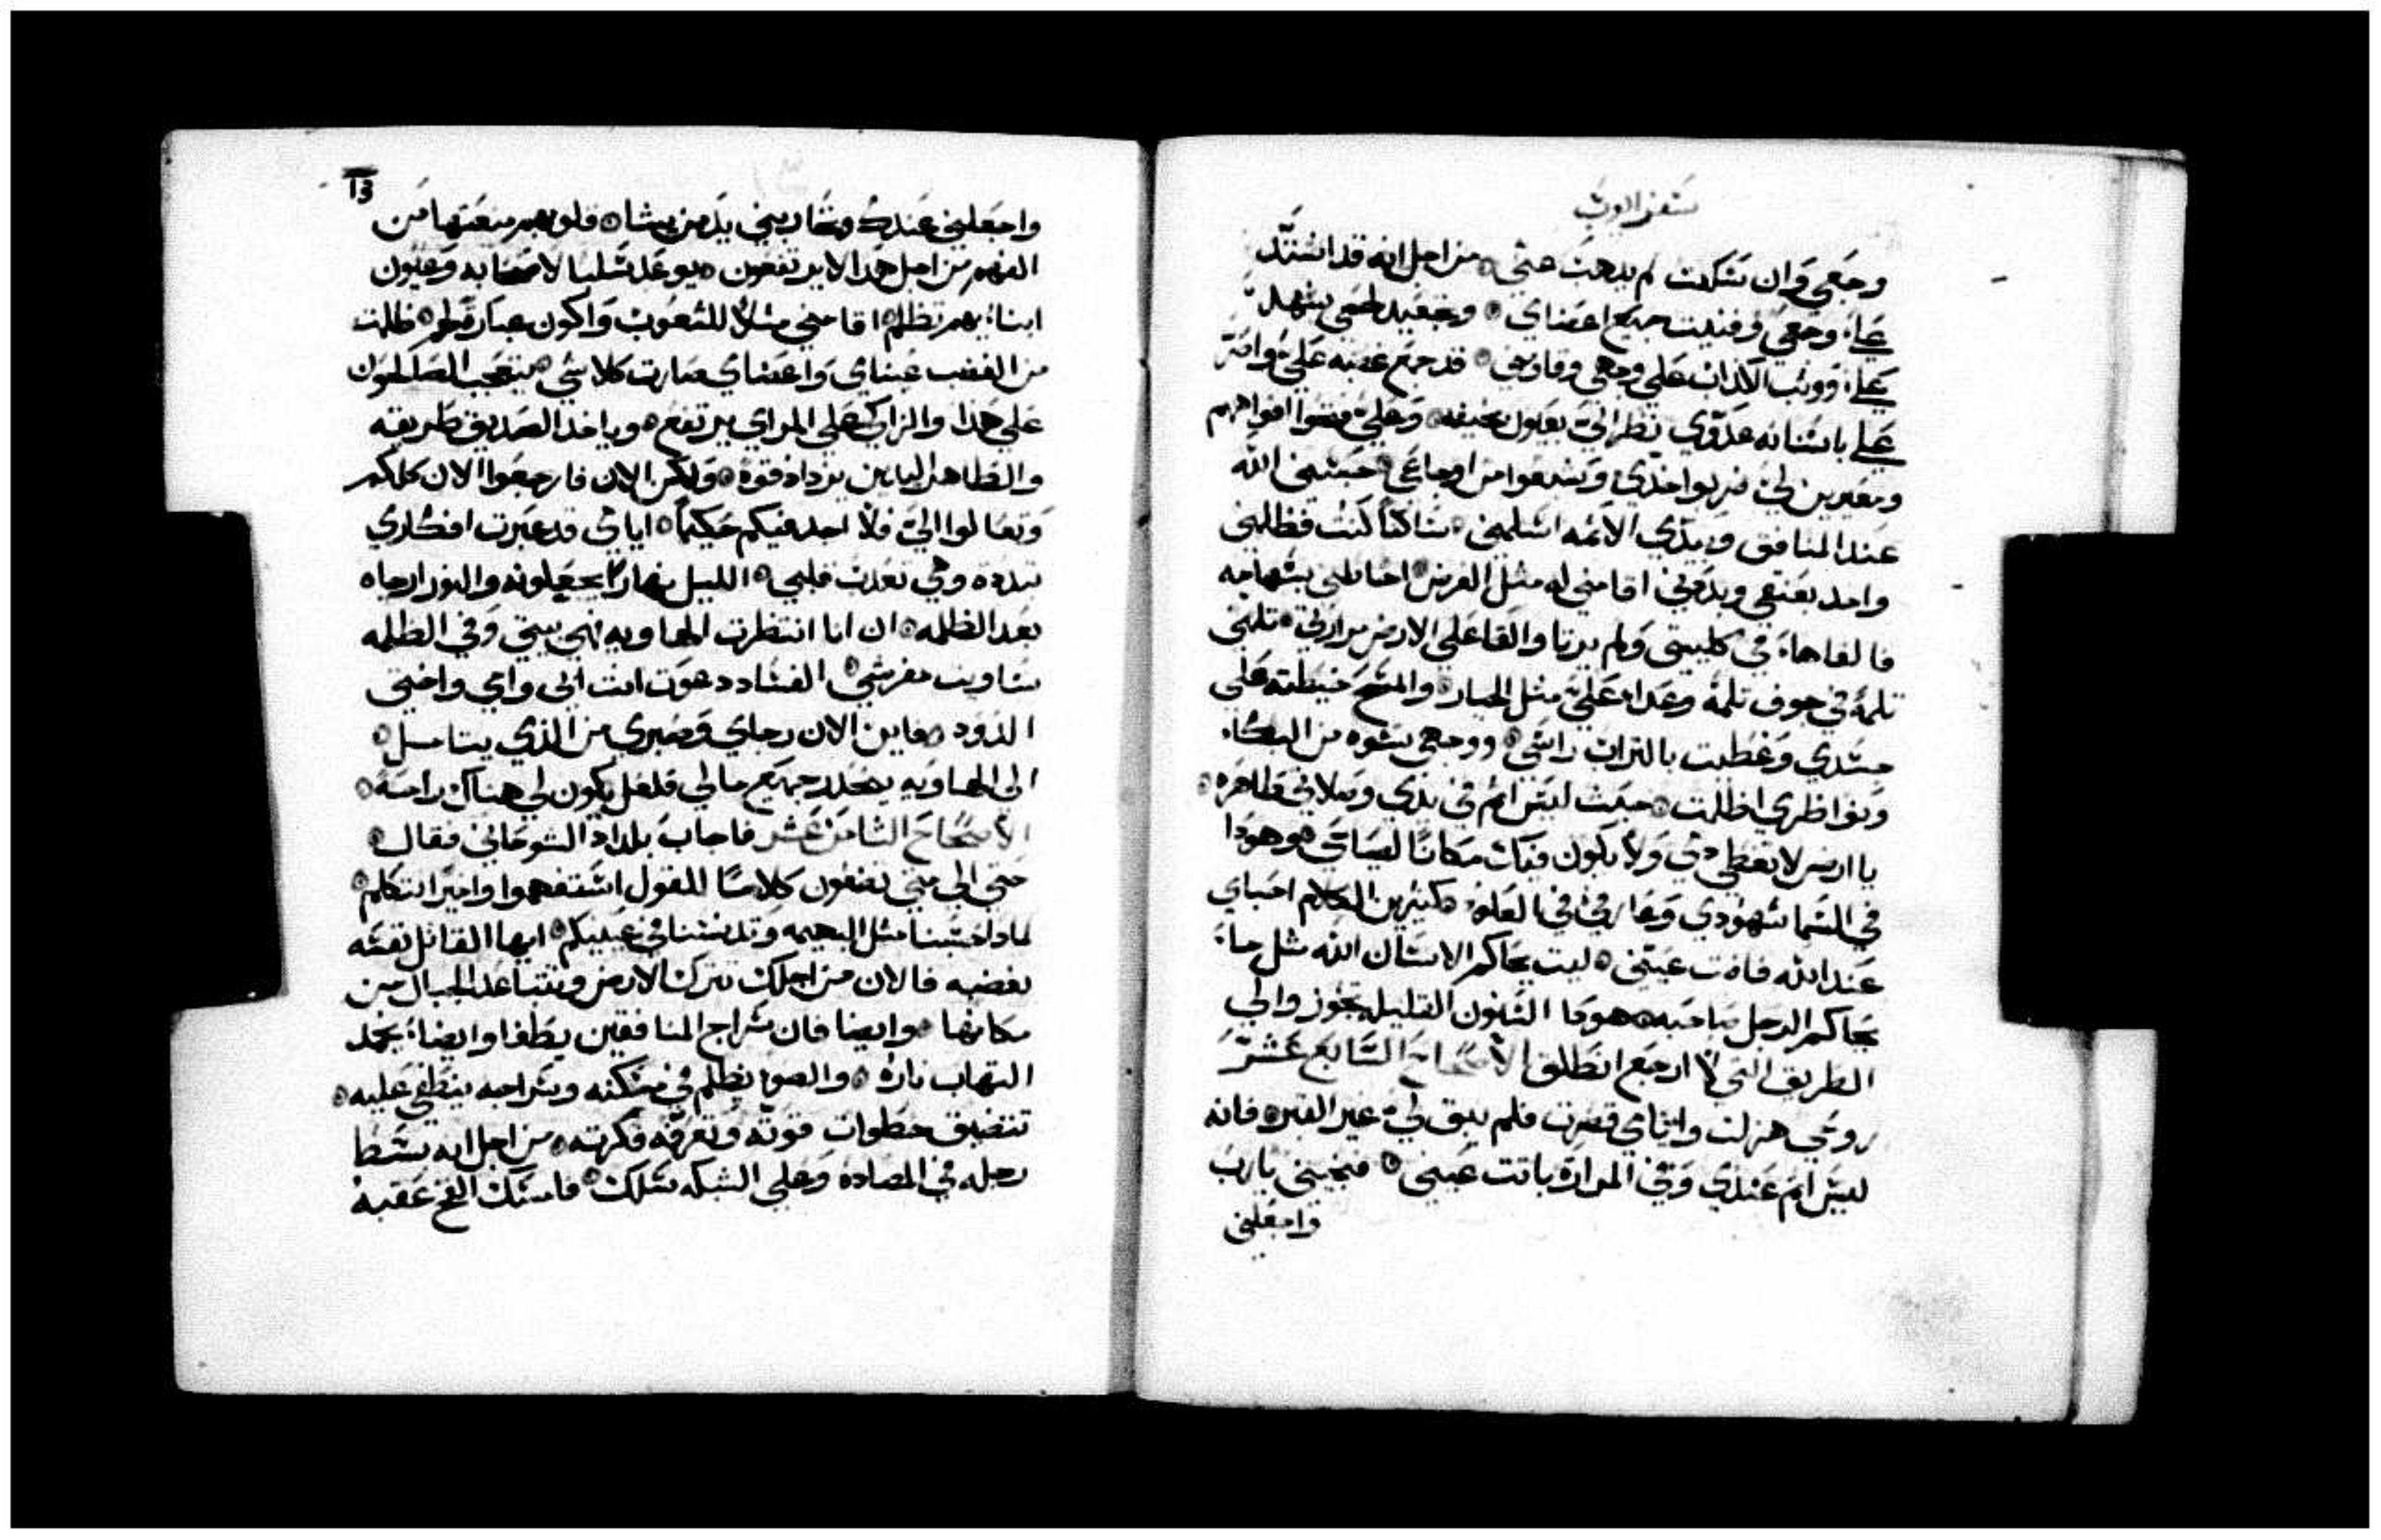 سفر ايوب
وجعي وان سكت لم يذهب عني من اجل انه قد اشتد
علي وجعي وفنيت جميع اعضاي وتجعيد لحمي يشهد
علي ووثب الكداب علي وجهي وقاومني قد جمع غضبه علي وامَر
علي باسنانه عدوي نظر الي بعيون مخيفه وعلي فتحوا افواههم
ومعيرين لي ضربوا خدي وشبعوا من اوجاعي حبسني الله
عند المنافق وبيدي الائمه اسلمني ساكناً كنت فظلمني
واحد بعنقي وبدعني اقامني له مثل الغرض احاطني بسهامه
فالقاها في كليتي ولم يرتا والقا علي الارض مرارتي تلمني
تلمة في جوف تلمة وعدا علي مثل الجبار والمسح خيطته علي
جسدي وغطيت بالتراب راسي ووجهي تشوه من البكاء
ونواظري اظلت حيث ليس اثم في يدي وصلاتي طاهره
يا ارض لا تغطي دمي ولا يكون فيك مكانا لصياحي هوهودا
في السما شهودي وعارفي في العلو كثيرين الكلام احباي
عند الله فاضت عيني ليت يحاكم الانسان الله مثل ما
يحاكم الرجل صاحبه هوذا السنون القليل تجوز والي
الطريق التي لا ارجع انطلق الاصحاح السابع عشر
روحي هزلت وايامي قصرت فلم يبق لي غير القبر فانه
ليس اثم عندي وفي المرارة باتت عيني فنجيني يارب
واجعلني
13
واجعلني عندك وتحاربني يد من يشا قلوبهم منعتها من
الفهم من اجل هدا لا يرتفعون يوعد سلبا لاصحابه وعيون
ابنايهم تظلم اقامني مثلا للشعوب واكون عباره لهم ظلمت
من الغضب عيناي واعضاي صارت كلا شي يتعجب الصالحون
علي هذا والزاكي علي المراي يرتفع وياخد الصديق طريقه
والطاهر اليدين يزداد قوة ولكن الان فارجعوا الان كلكم
وتعالوا الي فلا اجد فيكم حكيماً ايامي قد عبرت افكاري
تبددة وهي تعدت قلبي الليل نهارا يجعلونه والنور ارجاه
بعد الظلمه ان انا انتظرت الهاويه فهي بيتي وفي الظلمه
ساويت مفرشي الفساد دعوت انت ابي وامي واختي
الدود فاين الان رجاي وصبري من الذي يتامل
الي الهاويه ينحدر جميع مالي فلعل يكون لي هناك راحة
الاصحاح الثامن عشر فاجاب بلداد الشوحاني فقال
حتي الي متي تضعون كلامنا للقول استفهموا واخيرا نتكلم
لمادا حسبنا مثل البهيمه وتدنسنا في عينيكم ايها القاتل نفسه
بغضبه فالان من اجلك تترك الارض وتتباعد الجبال من
مكانها وايضا فان سراج المنافقين يطفا وايضا يخمد
التهاب ناره والضو يظلم في مسكنه وسراجه ينطفي عليه
تتضيق خطوات قوته وتغرقه فكرته من اجل انه بسط
رجله في المصاده وعلي الشبكه سلك فامسك الفخ عقبه